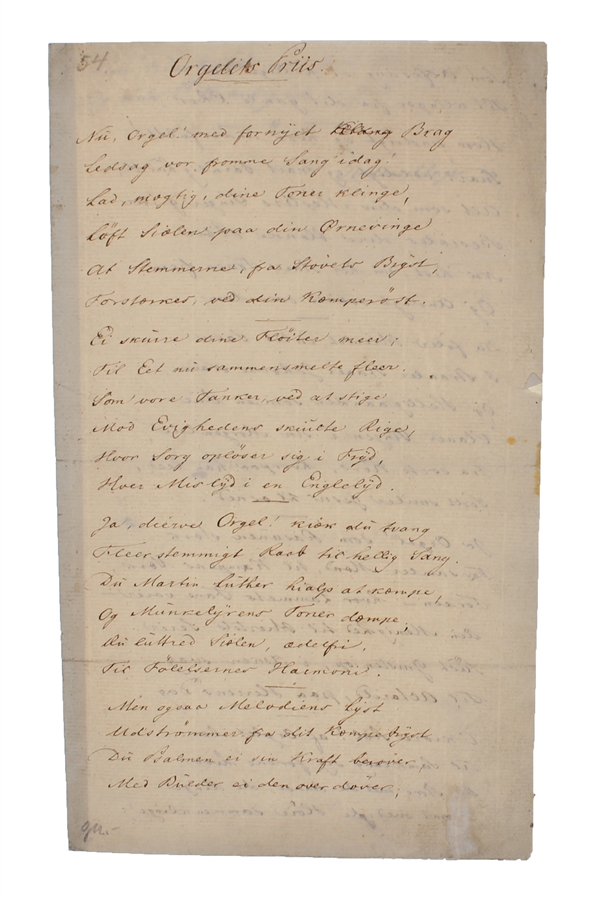 54
Orgelets Priis.
Nu, Orgel! med fornyet Brag
Ledsag vor fromme Sang idag!
Lad, mægtig, dine Toner klinge,
Løft Siælen paa din Ørnevinge
At Stemmerne, fra Støvets Bryst,
Forstærkes, ved din Kæmperøst.
Ei skurre dine Fløiter meer;
Til Eet nu sammensmelte fleer.
Som vore Tanker, ved at stige
Mod Evighedens skiulte Rige,
Hvor Sorg opløser sig i Fryd,
Hver Mislyd i en Englelyd.
Ja, diærve Orgel! kiæk du tvang
Fleerstemmigt Raab til hellig Sang.
Du Martin Luther hialp at kæmpe,
Og Munkelyrens Toner dæmpe;
Du luttred Siælen, ædelfri,
Til Følelsernes Harmoni.
Men ogsaa Melodiens Lyst
Udstrømmer fra dit Kæmpebryst
Du Psalmen ei sin Kraft berøver
Med Bulder ei den overdøver;